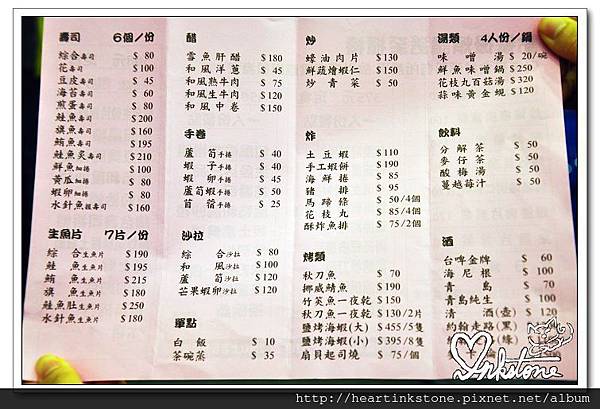 壽司 6個/份
綜合壽司 $ 80
花壽司 $ 100
豆皮壽司 $ 45
海苔壽司 $ 60
煎蛋壽司 $ 80
鮭魚壽司 $200
旗魚壽司 $160
鮪魚壽司 $195
鮭魚炙壽司 $210
鮮魚細捲 $100
黃瓜細捲 $ 80
蝦卵細捲 $ 80
水針魚握壽司 $ 160
生魚片 7片/份
綜合生魚片 $ 190
鮭魚生魚片 $ 195
鮪魚生魚片 $ 215
旗魚生魚片 $ 180
鮭魚肚生魚片 $ 250
水針魚生魚片 $ 180
醋
雪魚肝醋 $180
和風洋蔥 $ 45
和風熟牛肉 $ 75
和風生牛肉 $ 120
和風中卷 $ 150
手卷
蘆筍手捲 $ 40
蝦子手捲 $ 40
蝦卵手捲 $ 45
蘆筍蝦手捲 $ 50
苜蓿手捲 $ 25
沙拉
綜合沙拉 $ 80
和風沙拉 $100
蘆筍沙拉 $120
芒果蝦卵沙拉 $120
單點
白飯 $ 10
茶碗蒸 $ 35
炒
蠔油肉片 $ 130
鮮蔬燴蝦仁 $ 150
炒青菜 $ 50
炸
土豆蝦 $110
手工蝦餅 $ 190
海鮮捲 $ 85
豬排 $ 95
馬蹄條 $ 50/4個
花枝丸 $ 85/4個
酥炸魚排 $ 75/2個
烤類
秋刀魚 $ 70
挪威鯖魚 $ 190
竹筴魚一夜乾 $ 150
秋刀魚一夜乾 $ 130/2片
鹽烤海蝦(大) $ 455/5隻
鹽烤海蝦(小) $ 395/8隻
扇貝起司燒 $ 75/個
湯類 4人份/鍋
味噌湯 $ 20/碗
鮮魚味噌鍋 $ 250
花枝丸百菇湯 $ 320
蒜味黃金蜆 $120
飲料
分解茶 $ 50
麥仔茶 $ 50
酸梅湯 $ 50
蔓越莓汁 $ 50
酒
台啤金牌 $ 60
海尼根 $ 100
青島 $ 70
青島純生 $ 100
清酒(壺) $ 120
約翰走路(黑)
(綠)
inkstone
http://heartinkstone.pixnet.net/album